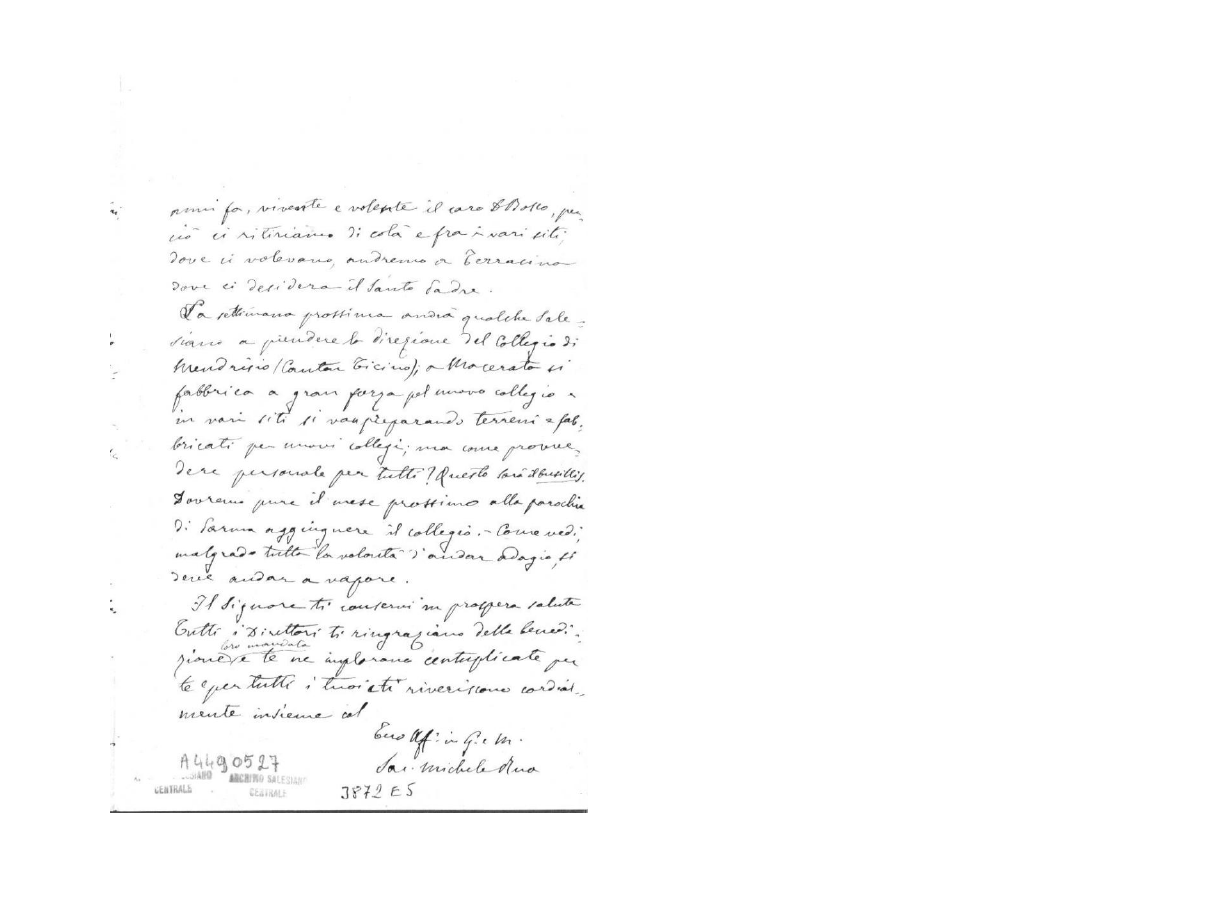 anni fa, vivente e volente il caro D. Bosco, per,
ciò ci ritiriamo di colà e fra i vari siti,
dove ci volevano, andremo a Terracina
dove ci desidera il Santo Padre.
La settimana prossima andrà qualche Sale-
siano a prendere la direzione del Collegio di
Mendrisio (Canton Ticino); a Macerata si
fabbrica a gran forza pel nuovo collegio e
in vari siti si van preparando terreni e fab,
bricati per nuovi collegi; ma come provve,
dere personale per tutti? Questo sarà il busillis.
Dovremo pure il mese prossimo alla parochia
di Parma aggiugnere il collegio. - Come vedi,
malgrado tutta la volontà d'andar adagio, si
deve andar a vapore.
Il Signore ti conservi in prospera salute
Tutti i Direttori ti ringraziano della benedi-
loro mandata
zione e te ne implorano centuplicate per
te e per tutti i tuoi e ti riveriscono cordial-
mente insieme col
Tuo Aff: in G. e M.
Sac. Michele Rua
A4490527
SIANO ARCHIVIO SALESIANO
CENTRALE CENTRALE
3872 E5